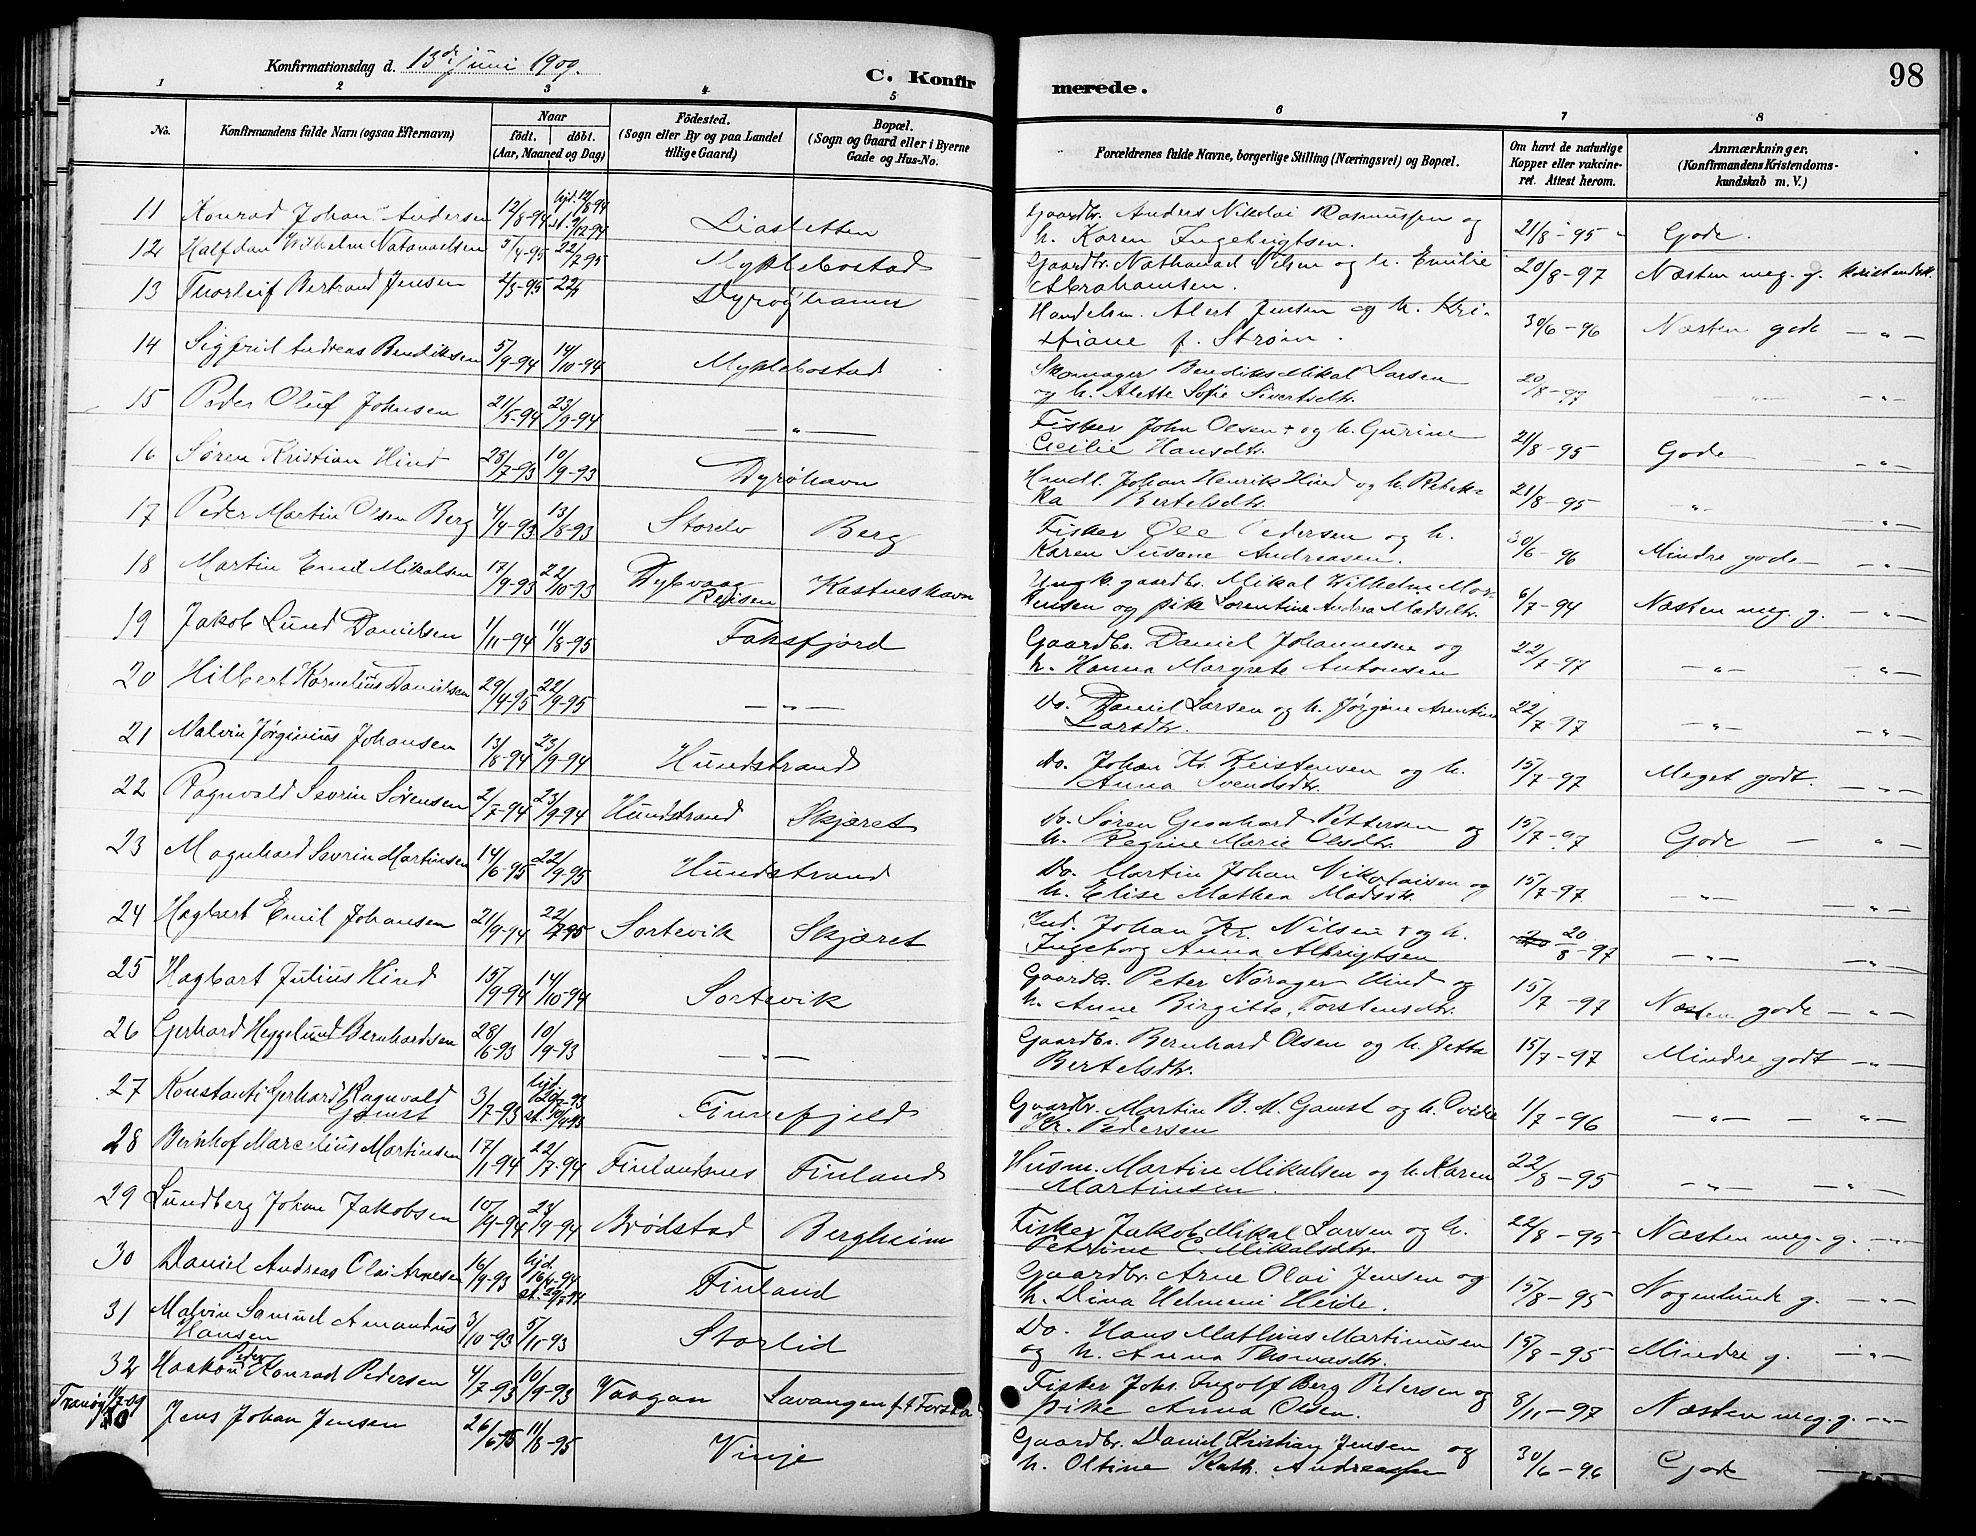 Konfirmationsdag d. 13de juni 1909.
C. Konfirmerede.
98
1 2 3 4 5 6 7 8
No.
Konfirmandens fulde Navn (ogsaa Efternavn)
Naar
födt. döbt.
(Aar, Maaned og Dag)
Födested.
(Sogn eller By og paa Landet
tillige Gaard)
Bopæl.
(Sogn og Gaard eller i Byerne
Gade og Hus-No.
Forældrenes fulde Navne, borgerlige Stilling (Næringsvei) og Bopæl.
Om havt de naturlige
Kopper eller vakcine-
ret. Attest herom.
Anmærkninger.
(Konfirmandens Kristendoms-
kundskab m. V.)
11 Konrad Johan Andersen 12/8-94 hjd. 12/8-94 st. 9/12-94 Liasletten Gaardbr. Anders Nikolai Rasmussen og
h. Karen Ingebrigtsen. 21/8-95 Gode.
12 Halfdan Wilhelm Natanaelsen 5/4-95 22/7-95 Myklebostad Gaardbr. Nathanael Nilsen og h. Emilie
Abrahamsen. 20/8-97 Næsten meg. g. kristendsk.
13 Thorleif Bertrand Jensen 2/3-95 22/7 Dyrøyhamn Handelsm. Alert Jensen og h. Kri-
stiane f. Strøm. 30/6-96 Næsten gode —„—
14 Sigfrid Andreas Bendiksen 5/9-94 14/10-94 Myklebostad Skomager Bendiks Mikal Larsen
og h. Alette Sofie Sivertsdtr. 20/8-97 —„— —„—
15 Peder Oluf Johnsen 21/5-94 23/9-94 —„— Fisker John Olsen + og h. Gurine
Cecilie Hansdtr. 21/8-95 Gode —„—
16 Søren Kristian Hind 28/7-93 10/9-93 Dyrøhavn Handl. Johan Henrik Hind og h. Rebek-
ka Bertelsdtr. 21/8-95 —„— —„—
17 Peder Martin Olsen Berg 4/4-93 13/8-93 Storelv Berg Fisker Ole Pedersen og h.
Karen Susane Andreasen. 30/6-96 Mindre gode —„—
18 Martin Emil Mikalsen 17/9-93 22/10-93 Dybvaag Reisen Kastneshavn Ungk. gaardbr. Mikal Wilhelm Mor-
tensen og pike Lorentine Andrea Madsdtr. 6/7-94 Næsten meg. g. —„—
19 Jakob Lund Danielsen 1/11-94 11/8-95 Faksfjord Gaardbr. Daniel Johannesen og
h. Hanna Margrete Antonsen 22/7-97 —„— —„—
20 Hilbert Kornelius Danielsen 29/4-95 22/9-95 —„— Do. Daniel Larsen og h. Jørgine Arentine
Larsdtr. 22/7-97 —„— —„—
21 Malvin Jørginius Johansen 13/8-94 23/9-94 Hundstrand Do. Johan Kr. Kristensen og h.
Anna Svendsdtr. 15/7-97 Meget godt. —„—
22 Ragnvald Sevrin Sørensen 2/7-94 23/9-94 Hundstrand Skjæret Do. Søren Geonhard Pettersen og
h. Regine Marie Olsdtr. 15/7-97 Gode —„—
23 Magnhard Sevrin Martinsen 14/6-95 22/9-95 Hundstrand Do. Martin Johan Nikolaisen og
h. Elise Mathea Madsdtr. 15/7-97 —„— —„—
24 Hagbart Emil Johansen 21/9-94 22/7-95 Sortevik Skjæret Ind. Johan Kr. Nilsen + og h.
Ingeborg Anna Albrigtsen 20/8-97 —„— —„—
25 Hagbart Julius Hind 15/9-94 14/10-94 Sortevik Gaardbr. Peter Nørager Hind og
h. Anne Birgitte Torstensdtr. 15/7-97 Næsten gode —„—
26 Gerhard Heggelund Bernhardsen 28/6-93 10/9-93 —„— Gaardbr. Bernhard Olsen og h. Jetta
Bertelsdtr. 15/7-97 Mindre godt —„—
27 Konstanti Gerhard Ragnvald
Gamst 3/7-93 hjd. st. 10/9-93 Finnefjeld Gaardbr. Martin B. M. Gamst og h. Ovidie
Kr. Pedersen 1/7-96 —„— —„—
28 Bernhof Marcelius Martinsen 17/1-94 22/7-94 Finlandnes Finland Husm. Martin Mikalsen og h. Karen
Martinsen. 22/8-95 —„— —„—
29 Lundberg Johan Jakobsen 10/9-94 23/9-94 Brødstad Bergheim Fisker Jakob Mikal Larsen og h.
Petrine C. Mikalsdtr. 22/8-95 Næsten meg. g. —„—
30 Daniel Andreas Olai Arnesen 16/9-93 hjd. 16/4-94 st. 29/7-94 Finland Gaardbr. Arne Olai Jensen og
h. Dina Helmeni Heide. 15/8-95 Nogenlunde g. —„—
31 Malvin Samuel Amandus
Hansen 3/10-93 5/11-93 Storlid Do. Hans Mathius Martinusen
og h. Anna Thomasdtr. 15/8-95 Mindre g. —„—
32 Haakon Peder Konrad Pedersen 4/7-93 10/9-93 Vaagan Savangen f. t. Forsta Fisker Johs. Ingolf Berg Pedersen og
pike Anna Olsen. 8/11-97 Næsten meg. g. —„—
Tranøy 11/7-09
Jens Johan Jensen 26/6-95 11/8-95 Vinje Gaardbr. Daniel Kristian Jensen og
h. Oltine Kath. Andreassen 30/6-96 Gode —„—